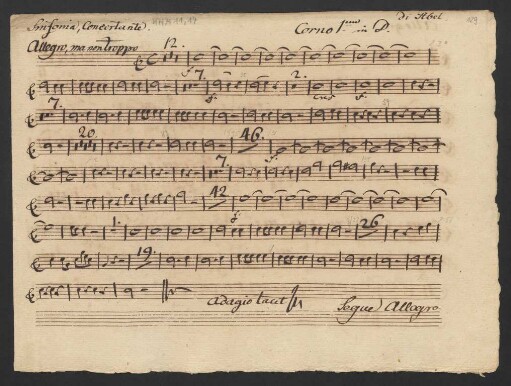 Sinfonia, Concertante. Corno 1mo in D. Di Abel
Allegro, ma non troppo 12.
7. 2.
f. cres f.
7.
20. 46.
7.
42
f
1. 26
19.
Adagio tacet Segue Allegro